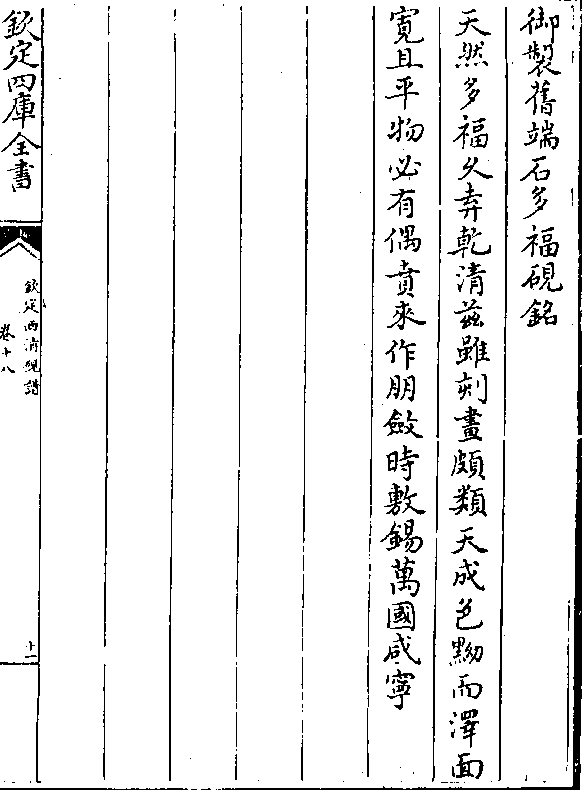 御製舊端石多福硯銘
天然多福久弆乾清兹雖刻畫頗類天成色黝而澤面
寛且平物必有偶賁來作朋斂時敷錫萬國咸寧
欽定四庫全書
欽定西清硯譜
卷十八
十二